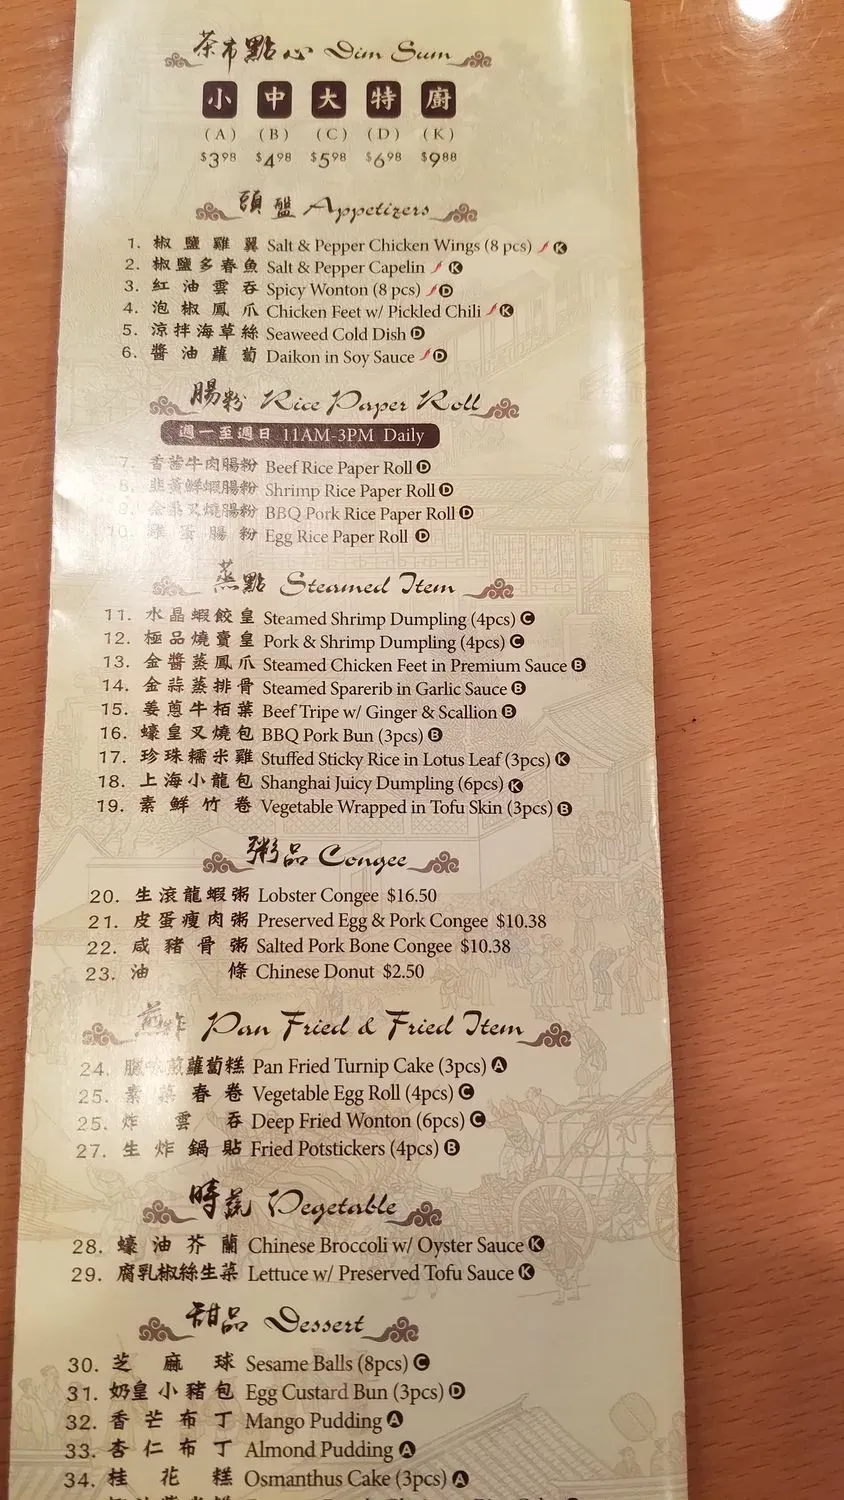 茶市點心 Dim Sum
小 中 大 特 廚
(A) (B) (C) (D) (K)
$3.98 $4.98 $5.98 $6.98 $9.88
頭盤 Appetizers
1. 椒鹽雞翼 Salt & Pepper Chicken Wings (8 pcs) K
2. 椒鹽多春魚 Salt & Pepper Capelin K
3. 紅油雲吞 Spicy Wonton (8 pcs) D
4. 泡椒鳳爪 Chicken Feet w/ Pickled Chili K
5. 涼拌海草絲 Seaweed Cold Dish D
6. 醬油蘿蔔 Daikon in Soy Sauce D
腸粉 Rice Paper Roll
週一至週日 11AM-3PM Daily
7. 香茜牛肉腸粉 Beef Rice Paper Roll D
8. 韭黃鮮蝦腸粉 Shrimp Rice Paper Roll D
9. 金菜叉燒腸粉 BBQ Pork Rice Paper Roll D
10. 雞蛋腸粉 Egg Rice Paper Roll D
蒸點 Steamed Item
11. 水晶蝦餃皇 Steamed Shrimp Dumpling (4pcs) C
12. 極品燒賣皇 Pork & Shrimp Dumpling (4pcs) C
13. 金醬蒸鳳爪 Steamed Chicken Feet in Premium Sauce B
14. 金蒜蒸排骨 Steamed Sparerib in Garlic Sauce B
15. 姜蔥牛栢葉 Beef Tripe w/ Ginger & Scallion B
16. 蠔皇叉燒包 BBQ Pork Bun (3pcs) B
17. 珍珠糯米雞 Stuffed Sticky Rice in Lotus Leaf (3pcs) K
18. 上海小龍包 Shanghai Juicy Dumpling (6pcs) K
19. 素鮮竹卷 Vegetable Wrapped in Tofu Skin (3pcs) B
粥品 Congee
20. 生滾龍蝦粥 Lobster Congee $16.50
21. 皮蛋瘦肉粥 Preserved Egg & Pork Congee $10.38
22. 咸豬骨粥 Salted Pork Bone Congee $10.38
23. 油條 Chinese Donut $2.50
煎炸 Pan Fried & Fried Item
24. 臘味煎蘿蔔糕 Pan Fried Turnip Cake (3pcs) A
25. 素菜春卷 Vegetable Egg Roll (4pcs) C
25. 炸雲吞 Deep Fried Wonton (6pcs) C
27. 生炸鍋貼 Fried Potstickers (4pcs) B
時蔬 Vegetable
28. 蠔油芥蘭 Chinese Broccoli w/ Oyster Sauce K
29. 腐乳椒絲生菜 Lettuce w/ Preserved Tofu Sauce K
甜品 Dessert
30. 芝麻球 Sesame Balls (8pcs) C
31. 奶皇小豬包 Egg Custard Bun (3pcs) D
32. 香芒布丁 Mango Pudding A
33. 杏仁布丁 Almond Pudding A
34. 桂花糕 Osmanthus Cake (3pcs) A